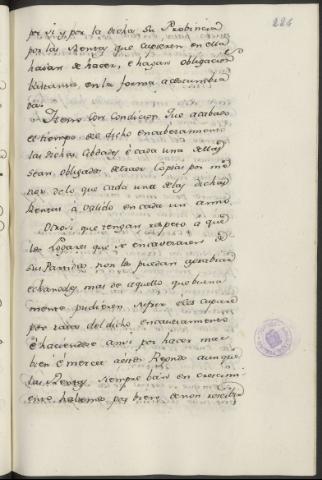 226
por si y por la dicha su Provincia
por las Rentas que cupieren en ella
haian de hacer, e hagan obligacion
en la forma acostumbra
da.
Item con condicion que acabado
el tiempo del dicho encabezamiento
las dichas Cibdades é cada una dellas
sean obligadas de traer Copias por me
nor de lo que cada una de las dichas
Rentas á valido en cada un anno.
Otrosi que tengan respeto á que
los Logares que se encavezaren de
sus Partidos non les puedan
echandoles, mas de aquello que buena
mente pudieren sufrir
por razon del dicho encavezamiento
é haciendose ansi por hacer mas
bien é merced á estos Regnos aunque
las Rentas siempre han en crecimi
ento habemos por bien